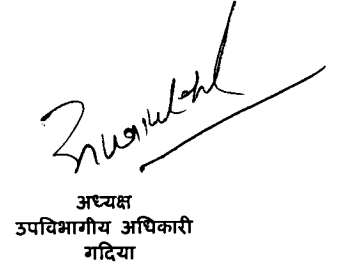 अध्यक्ष
उपविभागीय अधिकारी
गदिया